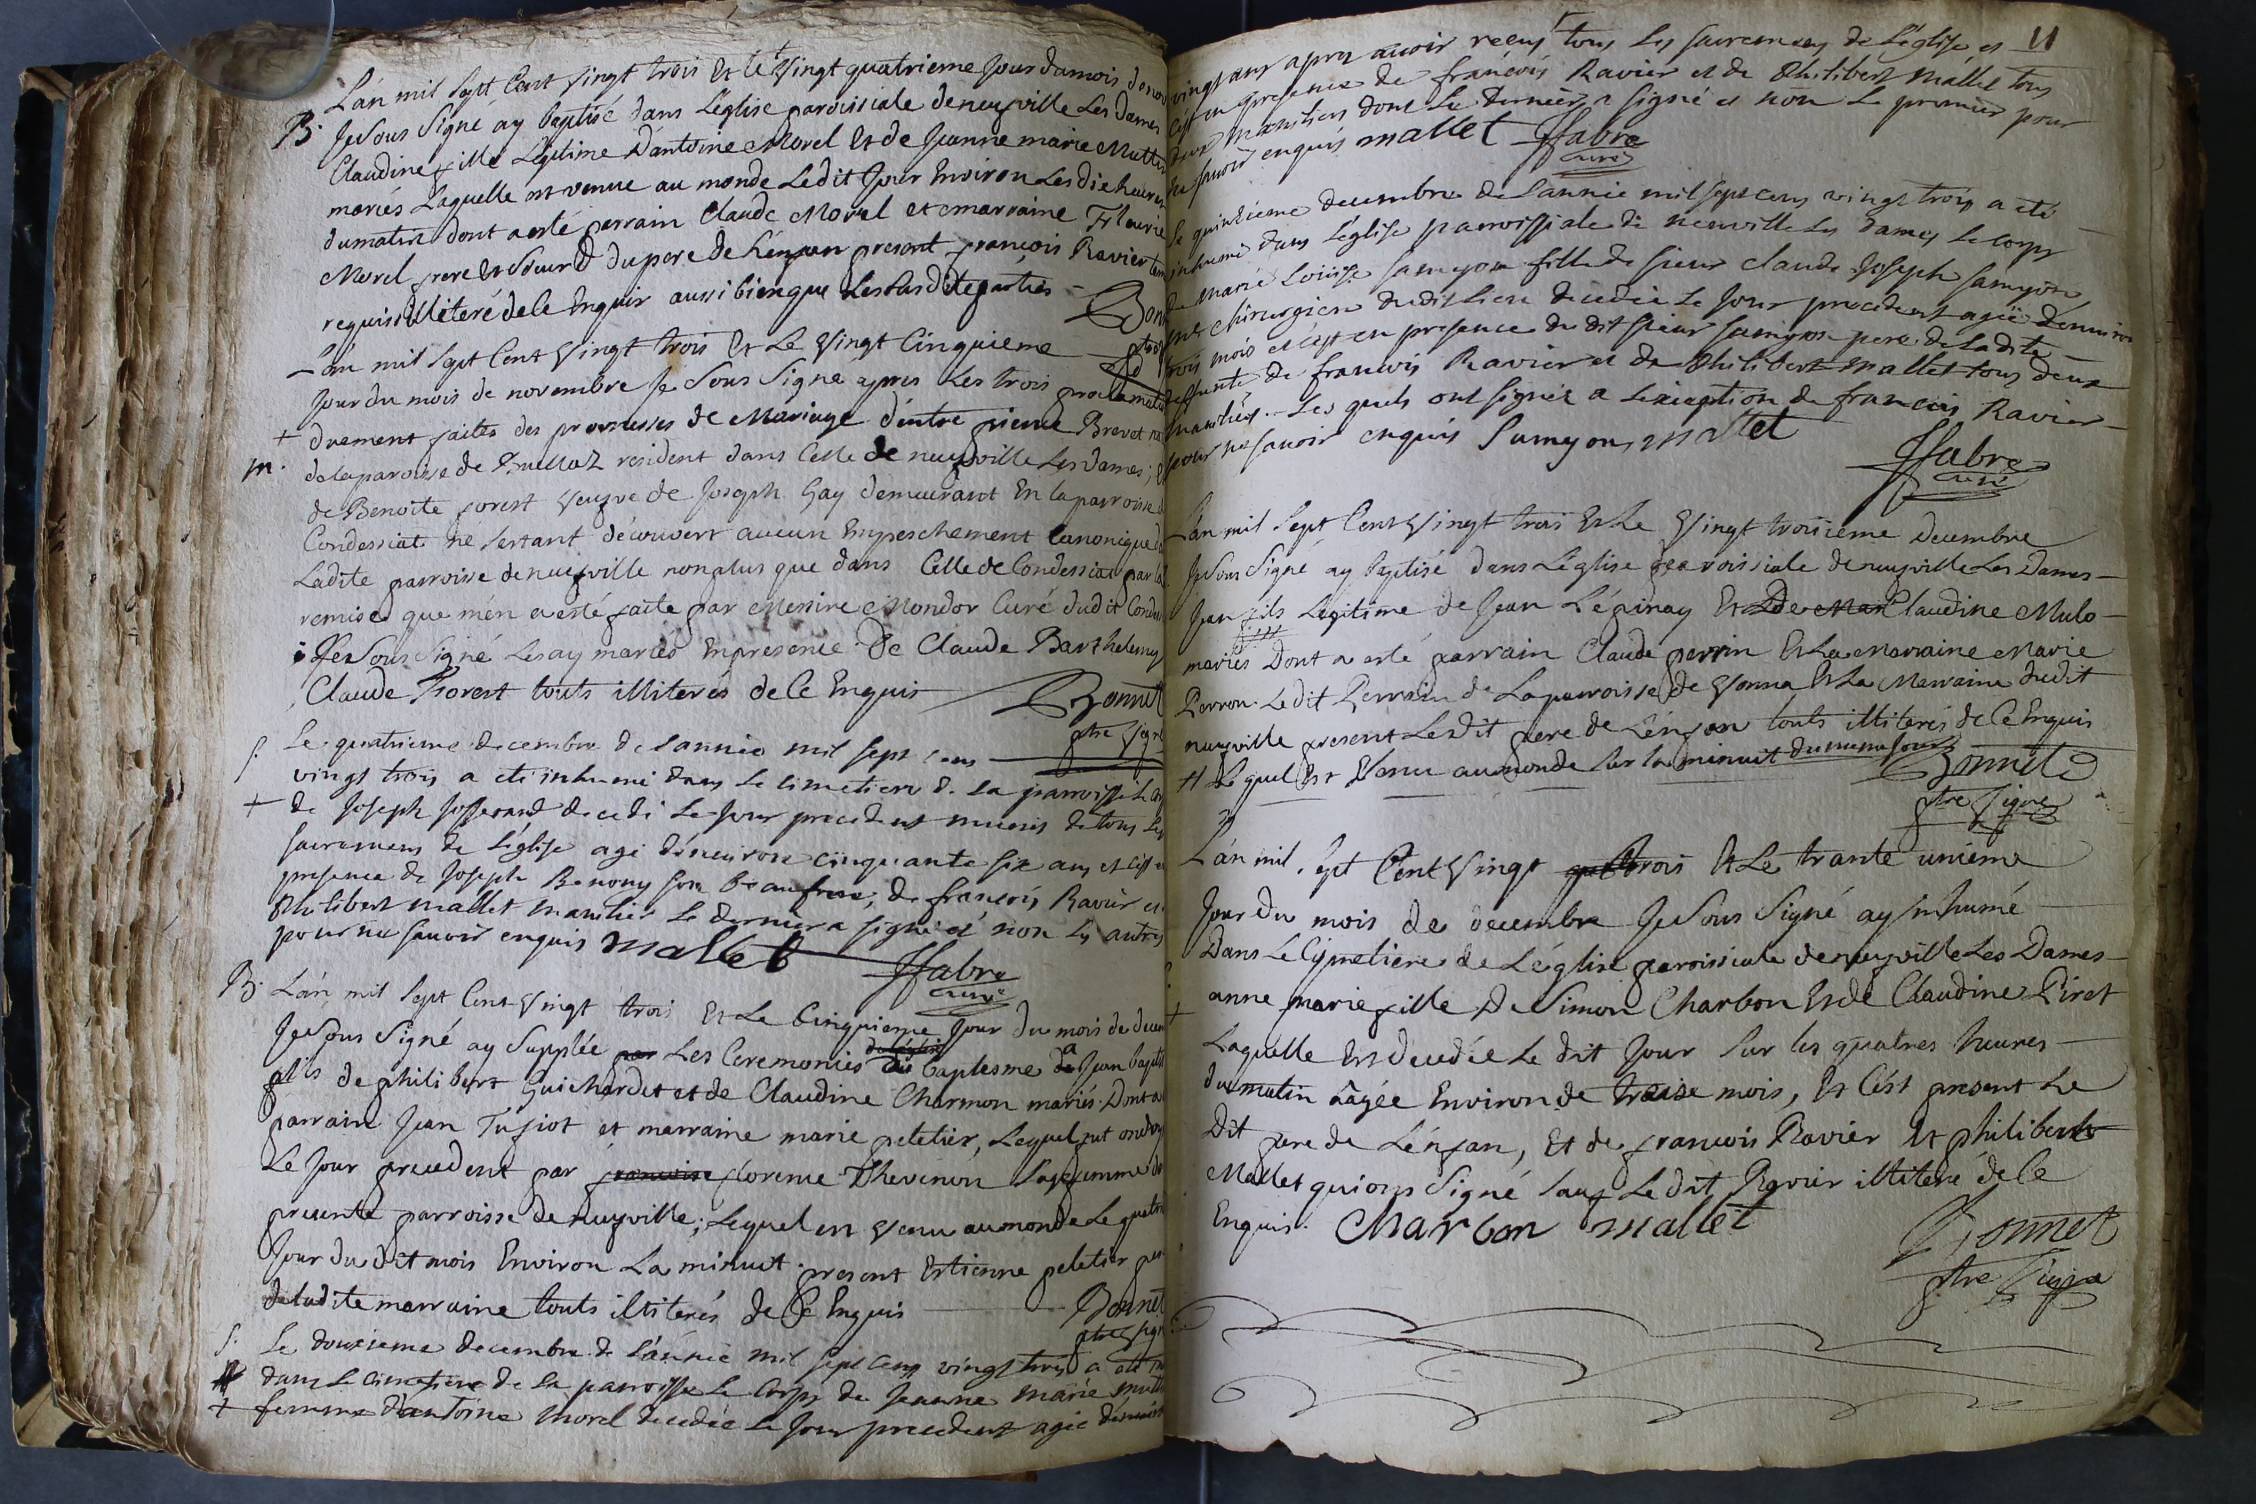 L'an mil sept Cent Vingt trois Et le Vingt quatrieme Jour du mois de nov
B. Je Sous Signé ay baptisé dans L'église paroissiale de neuyville Les Dames
Claudine fille Légitime D'antoine Morel Et de Jeanne marie
mariés Laquelle est venue au monde Ledit Jour Environ Les dix heures
du matin dont a esté parrain Claude Morel et marraine Fleurie
Morel frere Et Soeur du pere de L'enfan present françois Ravier
requis illiteré de le Enquis aussi bien que Les susdites parties
Bonn
L'an mil Sept Cent Vingt trois Et Le Vingt Cinquieme
Jour du mois de novembre Je Sous Signé apres Les trois proclamat
+ duement faites des promesses de Mariage d'entre pierre Brevet
m. de la paroisse de resident dans Celle de neuyville Les Dames;
de Benoite forest Veufve de Joseph Gay demeurant En la parroisse
Condessiat ne s'estant découvert aucun Empeschement Canonique
Ladite parroisse de neuyville non plus que dans Celle de Condessiat par
remise que m'en a esté faite par Messire Mondor Curé dudit Cond
Je Sous Signé Les ay mariés En presence De Claude Barthelemy
Claude Forest touts illiterés de Ce Enquis Bonnet
ptre Signé
S. Le quatrieme decembre de Lannée mil sept cens
vingt trois a eté inhumé dans le cimetiere de la parroisse Le
+ de Joseph Josserand decedé Le Jour precedent munis de tous Les
sacremens de L'église agé d'enuiron cinquante six ans et c'est
presence de Joseph Benony son beaufrere, de françois Ravier et
Philibert mallet manilier Le dernier a signé et non Les autres
pour ne sauoir enquis mallet ffabre
curé
B. L'an mil Sept Cent Vingt trois Et Le Cinquieme Jour du mois de decem
Je Sous Signé ay Supplée par Les Ceremonies du baptesme a Jean bapt
fils de philibert Guichardet et de Claudine Charmon mariés Dont a
parrain Jean et marraine marie peletier, Lequel fut ondoy
Le Jour precedent par francoise florence Thevenon Sagefemme
presente parroisse de neuyville; Lequel est venu au monde Le quatri
Jour du dit mois Environ La minuit. present Estienne peletier
de ladite marraine touts illiterés de Ce Enquis Bonnet
ptre Sign
S. Le douzieme decembre de L'année mil sept cens vingt trois a eté
dans Le cimetiere de La parroisse Le corps de Jeanne marie
+ femme d'antoine morel decedée Le Jour precedent agée d'enuiron
11
vingt ans apres auoir reçus tous Les sacremens de L'église et
c'est en presence de françois Ravier et de Philibert mallet tous
deux maniliers dont Le dernier a signé et non Le premier pour
ne sauoir enquis mallet ffabre
curé
Le quinzieme decembre de L'année mil sept cens vingt trois a eté
inhumé dans L'église parroissiale de neuville Les dames Le corps
de Marie Louise Samyon fille de sieur claude Joseph Samyon
chirurgien dudit Lieu decedée Le Jour precedent agée d'enuiron
trois mois et c'est en presence du dit sieur Samyon pere de Ladite
deffunte de francois Ravier et de Philibert mallet tous deux
maniliers Les quels ont signéz a L'exception de francois Ravier
pour ne sauoir enquis Samyon mallet
ffabre
curé
L'an mil Sept Cent Vingt trois Et Le Vingt troisieme decembre
Je Sous Signé ay baptisé dans L'église paroissiale de neuyville Les Dames
Jean fils Legitime de Jean Lépinay Et de Mar Claudine Mulo
mariés Dont a esté parrain Claude perrin Et La Marraine Marie
Perron. Le dit Perrin de La parroisse de Vonna Et La Marraine dudit
neuyville present Le dit pere de L'enfan touts illiterés de Ce Enquis
H Le quel Est Venu au monde sur la minuit du mesme Jour
Bonnet
ptre Signé
L'an mil Sept Cent Vingt trois Et Le trante unieme
Jour du mois de decembre Je Sous Signé ay Inhumé
Dans Le Cymetiere de L'église paroissiale de neuyville Les Dames
+ anne marie fille De Simon Charbon Et de Claudine Piret
Laquelle Est decedée Le dit Jour sur les quatres heures
du matin âgée Environ de treise mois, Et C'est present Le
Dit pere de L'enfan, Et de francois Ravier Et philibert
Mallet qui ons Signé sauf Le dit Ravier illiteré de Ce
Enquis. Charbon mallet
Bonnet
ptre Signé